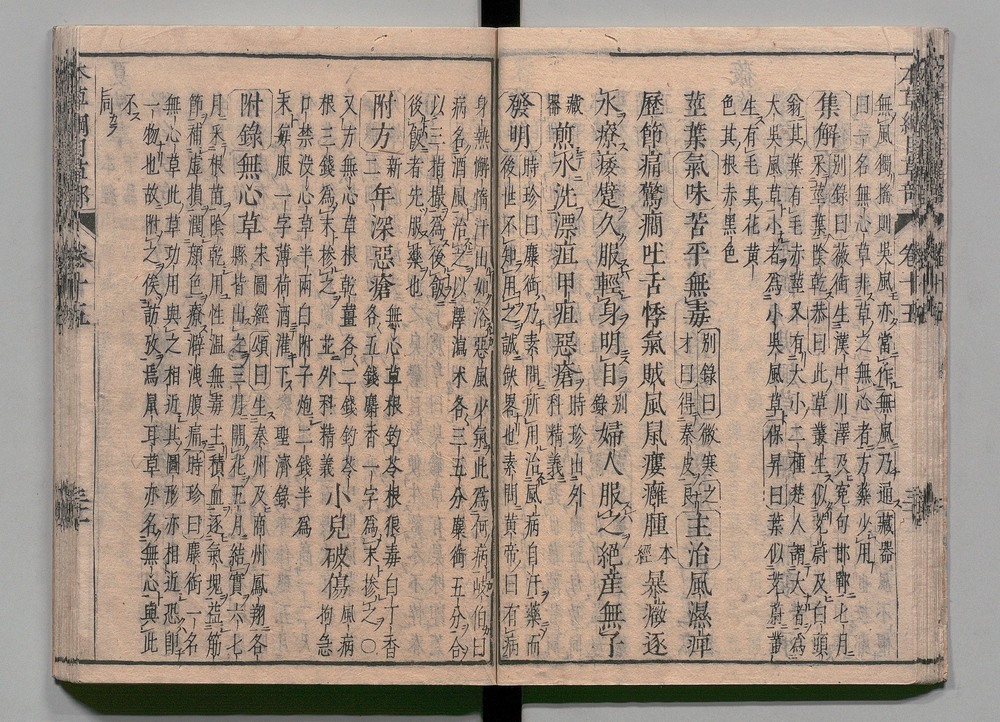 無風獨搖則吳風亦當作無風乃通藏器
曰草名無心草非草之無心者方藥少用
集解別錄曰薇銜生漢中川澤及冤句邯鄲七月
采莖葉陰乾恭曰此草叢生似茺蔚及白頭
翁其葉有毛赤莖又有大小二種楚人謂大者爲
大吳風草小者爲小吳風草保昇曰葉似茺蔚叢
生有毛其花黃
色其根赤黑色
莖葉氣味苦平無毒別錄曰微寒之
才曰得秦皮良主治風濕痺
歷節痛驚癇吐舌悸氣賊風鼠瘻癰腫本經暴癥逐
水療痿躄久服輕身明目別錄婦人服之絕產無子
藏器煎水洗瘭疽甲疽惡瘡時珍出外科精義
發明時珍曰麋銜乃素問所用治風病自汗藥而
後世不知用之誠缺畧也素問黃帝曰有病
身熱懈惰汗出如浴惡風少氣此爲何病岐伯曰
病名酒風治之以澤瀉朮各三五分麋銜五分合
以三指撮爲後飯
後飯者先服藥也
附方新二年深惡瘡無心草根釣苓根狼毒白丁香
各五錢麝香一字爲末摻之○
又方無心草根乾薑各二錢釣苓
根三錢爲末摻之並外科精義小兒破傷風病拘急
口禁沒心草半兩白附子炮二錢半爲
末每服一字薄荷酒灌下聖濟錄
附錄無心草宋圖經頌曰生秦州及商州鳳翔各
縣皆出之三月開花五月結實六七
月采根苗陰乾用性溫無毒主積血逐氣塊益筋
節補虛損潤顏色療澼洩腹痛時珍曰麋銜一名
無心草此草功用與之相近其圖形亦相近恐即
一物也故附之俟訪攷焉鼠耳草亦名無心與此
不同